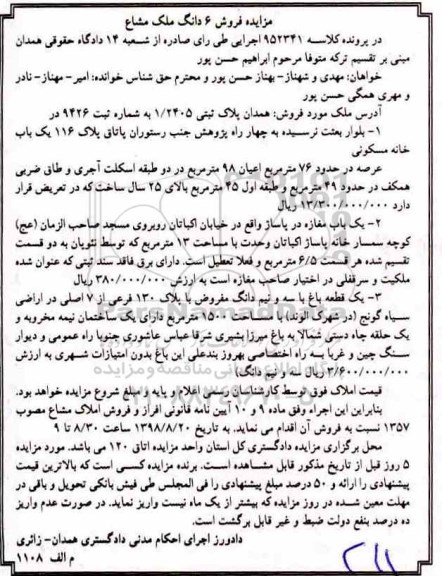 مزایده فروش ۶ دانگ ملک مشاع
در پرونده کلاسه ۹۵۲۳۴۱ اجرایی طی رای صادره از شعبه ۱۴ دادگاه حقوقی همدان
مبنی بر تقسیم ترکه متوفا مرحوم ابراهیم حسن پور
خواهان: مهدی و شهناز- بهناز حسن پور و محترم حق شناس خوانده: امیر- مهناز- نادر
و مهری همگی حسن پور
آدرس ملک مورد فروش: همدان پلاک ثبتی ۱/۲۴۰۵ به شماره ثبت ۹۴۲۶ در
۱- بلوار بعثت نرسیده به چهار راه پژوهش جنب رستوران پاتاق پلاک ۱۱۶ یک باب
خانه مسکونی
عرصه در حدود ۷۶ مترمربع اعیان ۹۸ مترمربع در دو طبقه اسکلت آجری و طاق ضربی
همکف در حدود ۴۹ مترمربع و طبقه اول ۴۵ مترمربع بالای ۲۵ سال ساخت که در تعریض قرار
دارد ۱۳/۳۰۰/۰۰۰/۰۰۰ ریال
۲- یک باب مغازه در پاساژ واقع در خیابان اکباتان روبروی مسجد صاحب الزمان (عج)
کوچه سمسار خانه پاساژ اکباتان وحدت با مساحت ۱۳ مترمربع که توسط نئوپان به دو قسمت
تقسیم شده هر قسمت ۶/۵ مترمربع و فعلا تعطیل است. دارای برق فاقد سند ثبتی که عنوان شده
ملکیت و سرقفلی در اختیار صاحب مغازه است به ارزش ۳۸۰/۰۰۰/۰۰۰ ریال
۳- یک قطعه باغ با سه و نیم دانگ مفروض با پلاک ۱۳۰ فرعی از ۷ اصلی در اراضی
سیاه گونج (در شهرک الوند) با مساحت ۱۵۰۰ مترمربع دارای یک ساختمان نیمه مخروبه و
یک حلقه چاه دستی شمالا به باغ میرزا بشیری شرقا عباس عاشوری جنوبا راه عمومی و دیوار
سنگ چین و غربا به راه اختصاصی بهروز بندعلی این باغ بدون امتیازات شهری به ارزش
۳/۶۰۰/۰۰۰/۰۰۰ ریال سه و نیم دانگ)
قیمت املاک فوق توسط کارشناسان رسمی اعلام و پایه و مبلغ شروع مزایده خواهد بود.
بنابراین این اجراه وفق ماده ۹ و ۱۰ آیین نامه قانونی افراز و فروش املاک مشاع مصوب
۱۳۵۷ نسبت به فروش آن اقدام می نماید. به تاریخ ۱۳۹۸/۸/۲۰ ساعت ۸/۳۰ تا ۹
محل برگزاری مزایده دادگستری کل استان واحد مزایده اتاق ۱۲۰ می باشد. مورد مزایده
۵ روز قبل از تاریخ مذکور قابل مشاهده است. برنده مزایده کسی است که بالاترین قیمت
پیشنهادی را ارائه و ۵۰ درصد مبلغ پیشنهادی را فی المجلس طی فیش بانکی تحویل و باقی در
مهلت معین شده در روز مزایده که بیشتر از یک ماه نیست واریز نماید. در صورت عدم واریز
ده درصد بنفع دولت ضبط و غیر قابل برگشت است.
دادورز اجرای احکام مدنی دادگستری همدان- زائری
م الف ۱۱۰۸